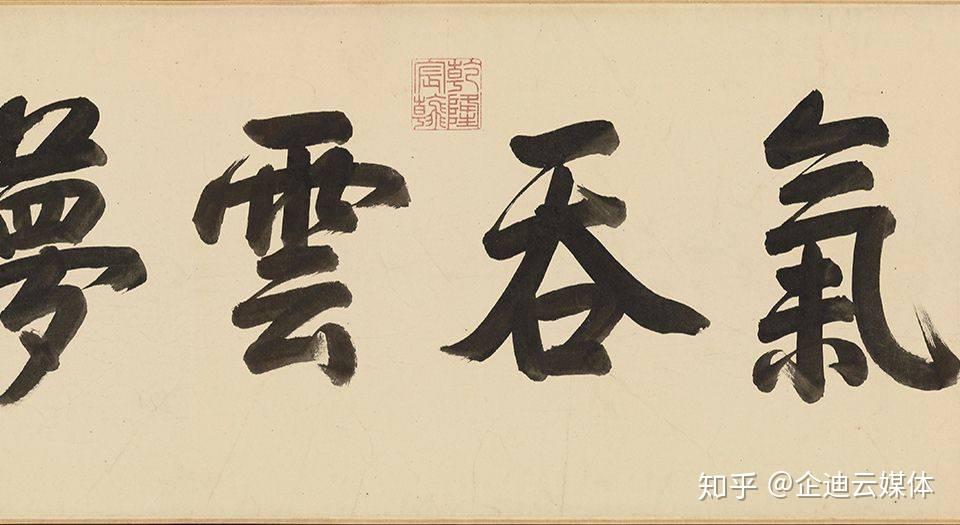 氣吞雲夢
乾隆
宸翰
知乎 @企迪云媒体